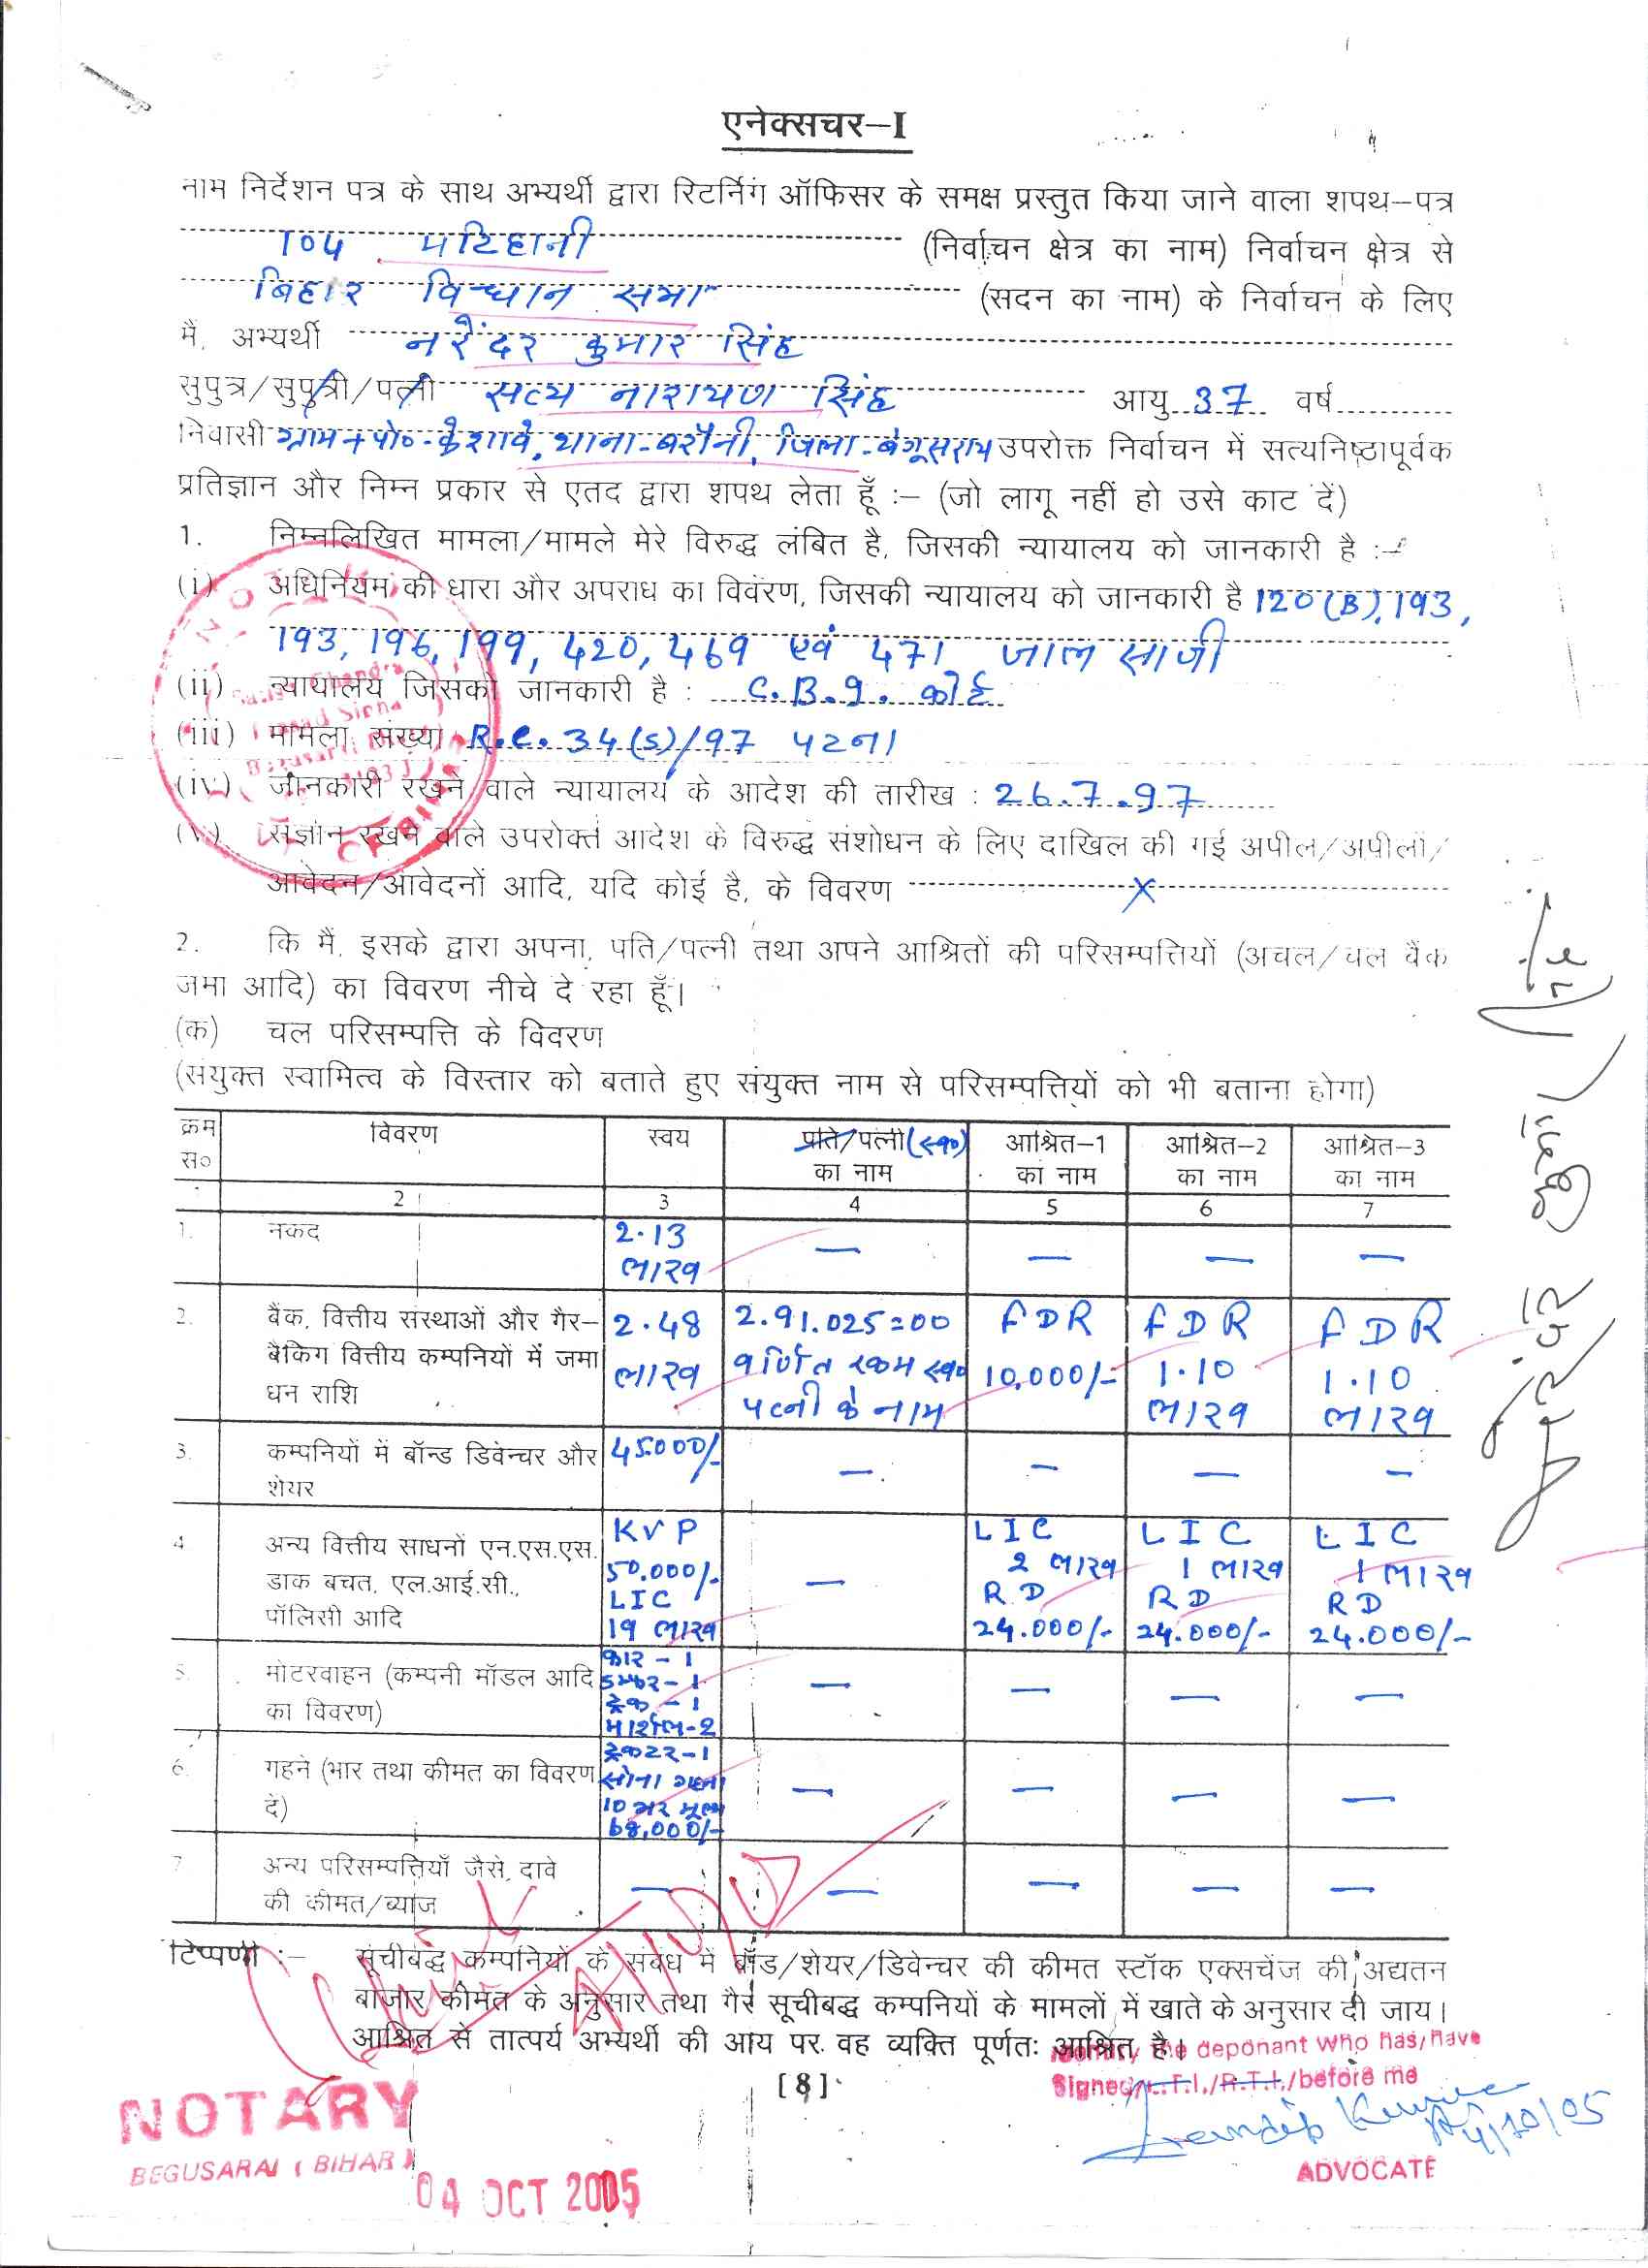 एनेक्सचर–I
नाम निर्देशन पत्र के साथ अभ्यर्थी द्वारा रिटर्निंग ऑफिसर के समक्ष प्रस्तुत किया जाने वाला शपथ–पत्र
104 मटिहानी (निर्वाचन क्षेत्र का नाम) निर्वाचन क्षेत्र से
बिहार विधान सभा (सदन का नाम) के निर्वाचन के लिए
मैं, अभ्यर्थी नरेंदर कुमार सिंह
सुपुत्र/सुपुत्री/पत्नी सत्य नारायण सिंह आयु 37 वर्ष
निवासी ग्राम + पो०-केशावे, थाना-बरौनी, जिला-बेगूसराय उपरोक्त निर्वाचन में सत्यनिष्ठापूर्वक
प्रतिज्ञान और निम्न प्रकार से एतद द्वारा शपथ लेता हूँ :– (जो लागू नहीं हो उसे काट दें)
1. निम्नलिखित मामला/मामले मेरे विरुद्ध लंबित है, जिसकी न्यायालय को जानकारी है :–
(i) अधिनियम की धारा और अपराध का विवरण, जिसकी न्यायालय को जानकारी है 120(B), 193,
193, 196, 199, 420, 469 एवं 471 जाल साजी
(ii) न्यायालय जिसको जानकारी है : C.B.I. कोर्ट
(iii) मामला संख्या R.C. 34(S)/97 पटना
(iv) जानकारी रखने वाले न्यायालय के आदेश की तारीख : 26.7.97
(v) संज्ञान रखने वाले उपरोक्त आदेश के विरुद्ध संशोधन के लिए दाखिल की गई अपील/अपीलों/
आवेदन/आवेदनों आदि, यदि कोई है, के विवरण X
2. कि मैं, इसके द्वारा अपना, पति/पत्नी तथा अपने आश्रितों की परिसम्पत्तियों (अचल/चल बैंक
जमा आदि) का विवरण नीचे दे रहा हूँ।
(क) चल परिसम्पत्ति के विवरण
(संयुक्त स्वामित्व के विस्तार को बताते हुए संयुक्त नाम से परिसम्पत्तियों को भी बताना होगा)
क्रम स० विवरण स्वयं पति/पत्नी (स्व०) का नाम आश्रित–1 का नाम आश्रित–2 का नाम आश्रित–3 का नाम
2 3 4 5 6 7
1. नकद 2.13 लाख — — — —
2. बैंक, वित्तीय संस्थाओं और गैर– 2.48 2.91.025=00 FDR FDR FDR
बैंकिंग वित्तीय कम्पनियों में जमा लाख वर्णित रकम स्व० 10,000/- 1.10 1.10
धन राशि पत्नी के नाम लाख लाख
3. कम्पनियों में बॉन्ड डिवेन्चर और 45000/- — — — —
शेयर
4 अन्य वित्तीय साधनों एन.एस.एस. KVP — LIC LIC LIC
डाक बचत, एल.आई.सी., 50.000/- 2 लाख 1 लाख 1 लाख
पॉलिसी आदि LIC RD RD RD
19 लाख 24.000/- 24.000/- 24.000/-
5. मोटरवाहन (कम्पनी मॉडल आदि कार - 1 — — — —
का विवरण) डम्फर - 1
ट्रक - 1
मार्शल - 2
6. गहने (भार तथा कीमत का विवरण ट्रेकटर - 1 — — — —
दें) सोना गहना
10 भर मूल्य
68,000/-
7 अन्य परिसम्पत्तियाँ जैसे, दावे — — — — —
की कीमत/ब्याज
टिप्पणी :– सूचीबद्ध कम्पनियों के संबंध में बॉंड/शेयर/डिवेन्चर की कीमत स्टॉक एक्सचेंज की अद्यतन
बाजार कीमत के अनुसार तथा गैर सूचीबद्ध कम्पनियों के मामलों में खाते के अनुसार दी जाय।
आश्रित से तात्पर्य अभ्यर्थी की आय पर वह व्यक्ति पूर्णतः आश्रित है।
[8]
the deponant who has/have
Signed/L.T.I./R.T.I./before me
4/10/05
ADVOCATE
NOTARY
BEGUSARAI (BIHAR)
04 OCT 2005
नरेंदर कुमार सिंह